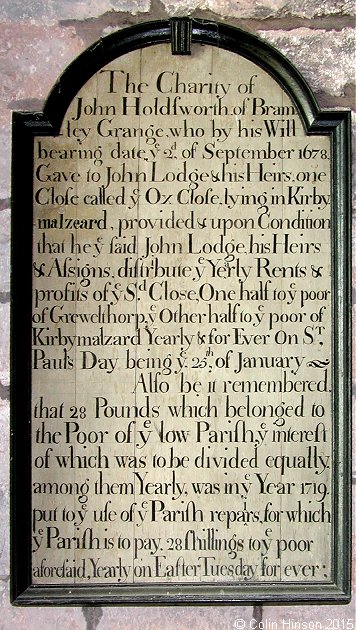 The Charity of
John Holdſworth, of Bram
ley Grange, who by his Will
bearing date, yͤ 2ᵈ. of September 1678.
Gave to John Lodge & his Heirs, one
Cloſe called yͤ Ox Cloſe, lying in Kirby
malzeard, provided & upon Condition
that he yͤ ſaid John Lodge, his Heirs
& Aſsigns, diſtribute yͤ Yeͬrly Rents &
profits of yͤ Sᵈ. Cloſe, One half to yͤ poor
of Grewelthorp, yͤ Other half to yͤ poor of
Kirbymalzard Yearly & for Ever On Sᵀ,
Pauls Day being yͤ 25ᵗʰ, of January
Alſo be it remembered,
that 28 Pounds which belonged to
the Poor of yͤ low Pariſh, yͤ intereſt
of which was to be divided equally
among them Yearly, was in yͤ Year 1719,
put to yͤ uſe of yͤ Pariſh repairs, for which
yͤ Pariſh is to pay, 28 ſhillings to yͤ poor
aforeſaid, Yearly on Eaſter Tueſday for ever:
© Colin Hinson 2015